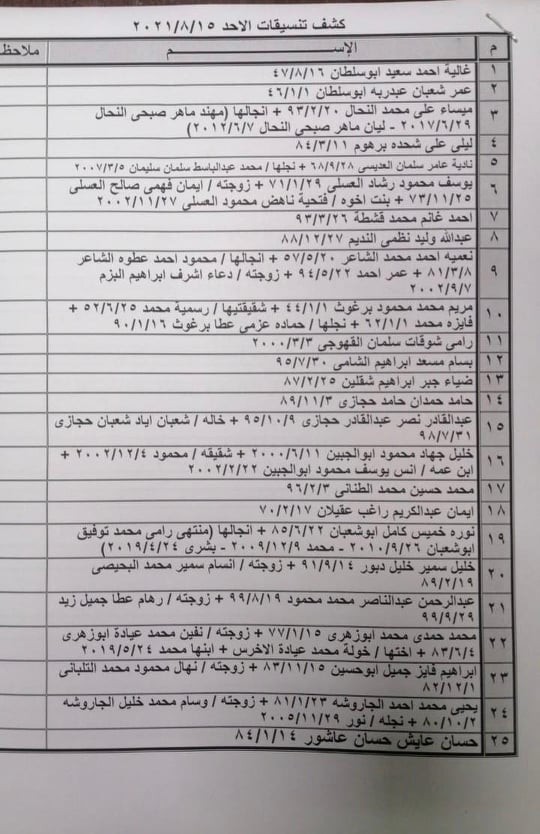 كشف تنسيقات الاحد ٢٠٢١/٨/١٥
م الإســـــــــم ملاحظ
١ غالية احمد سعيد ابوسلطان ٤٧/٨/١٦
٢ عمر شعبان عبدربه ابوسلطان ٤٦/١/١
٣ ميساء على محمد النحال ٩٣/٢/٢٠ + انجالها (مهند ماهر صبحى النحال
٢٠١٧/٦/٢٩ - ليان ماهر صبحى النحال ٢٠١٢/٦/٧)
٤ ليلى على شحده برهوم ٨٤/٣/١١
٥ نادية عامر سلمان العديسى ٦٨/٩/٢٨ + نجلها / محمد عبدالباسط سلمان سليمان ٢٠٠٧/٣/٥
٦ يوسف محمود رشاد العسلى ٧١/١/٢٩ + زوجته / ايمان فهمى صالح العسلى
٧٣/١١/٢٥ + بنت اخوه / فتحية ناهض محمود العسلى ٢٠٠٢/١١/٢٧
٧ احمد غانم محمد قشطة ٩٣/٣/٢٦
٨ عبدالله وليد نظمى النديم ٨٨/١٢/٢٧
٩ نعميه احمد محمد الشاعر ٥٧/٥/٢٠ + انجالها / محمود احمد عطوه الشاعر
٨١/٣/٨ + عمر احمد ٩٤/٥/٢٢ + زوجته / دعاء اشرف ابراهيم البزم
٢٠٠٢/٩/٧
١٠ مريم محمد محمود برغوث ٤٤/١/١ + شقيقتيها / رسمية محمد ٥٢/٦/٢٥ +
فايزه محمد ٦٢/١/١ + نجلها / حماده عزمى عطا برغوث ٩٠/١/١٦
١١ رامى شوقات سلمان القهوجى ٢٠٠٠/٣/٣
١٢ بسام مسعد ابراهيم الشامى ٩٥/٧/٣٠
١٣ ضياء جبر ابراهيم شقلين ٨٧/٢/٢٥
١٤ حامد حمدان حامد حجازى ٨٩/١١/٣
١٥ عبدالقادر نصر عبدالقادر حجازى ٩٥/١٠/٩ + خاله / شعبان اياد شعبان حجازى
٩٨/٧/٣١
١٦ خليل جهاد محمود ابوالجبين ٢٠٠٠/٦/١١ + شقيقه / محمود ٢٠٠٢/١٢/٤ +
ابن عمه / انس يوسف محمود ابوالجبين ٢٠٠٢/٢/٢٢
١٧ محمد حسين محمد الطنانى ٩٦/٢/٣
١٨ ايمان عبدالكريم راغب عقيلان ٧٠/٢/١٧
١٩ نوره خميس كامل ابوشعبان ٨٥/٦/٢٢ + انجالها (منتهى رامى محمد توفيق
ابوشعبان ٢٠١٠/٩/٢٦ - محمد ٢٠٠٩/١٢/٩ - بشرى ٢٠١٩/٤/٢٤)
٢٠ خليل سمير خليل دبور ٩١/٩/١٤ + زوجته / انسام سمير محمد البحيصى
٨٩/٢/١٩
٢١ عبدالرحمن عبدالناصر محمد محمود ٩٩/٨/١٩ + زوجته / رهام عطا جميل زيد
٩٩/٩/٢٩
٢٢ محمد حمدى محمد ابوزهرى ٧٧/١/١٥ + زوجته / نفين محمد عيادة ابوزهرى
٨٣/٦/٤ + اختها / خولة محمد عيادة الاخرس + ابنها محمد ٢٠١٩/٥/٢٤
٢٣ ابراهيم فايز جميل ابوحسين ٨٣/١١/١٥ + زوجته / نهال محمود محمد التلبانى
٨٢/١٢/١
٢٤ يحيى محمد احمد الجاروشه ٨١/١/٢٣ + زوجته / وسام محمد خليل الجاروشه
٨٠/١٠/٢ + نجله / نور ٢٠٠٥/١١/٢٩
٢٥ حسان عايش حسان عاشور ٨٤/١/١٤